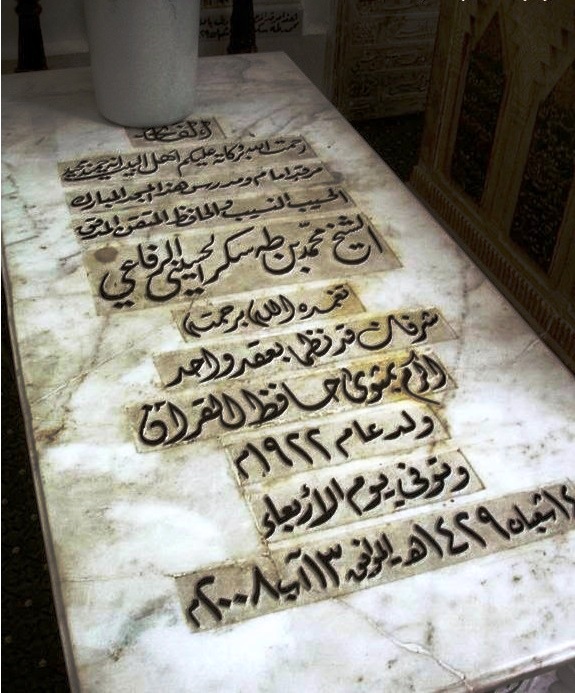 الفاتحة
رحمت الله وبركاته عليكم أهل البيت
مرقد إمام ومدرس هذا المسجد المبارك
الحسيب النسيب والحافظ المتقن المقرئ
الشيخ محمد بن طه سكر الحسيني الرفاعي
تغمده الله برحمته
شرفان قد نظما بعقد واحد
أكرم بمثوى حافظ القرآن
ولد عام ١٩٢٢م
وتوفي يوم الأربعاء
١٢ شعبان ١٤٢٩هـ الموافق ١٣ آب ٢٠٠٨م